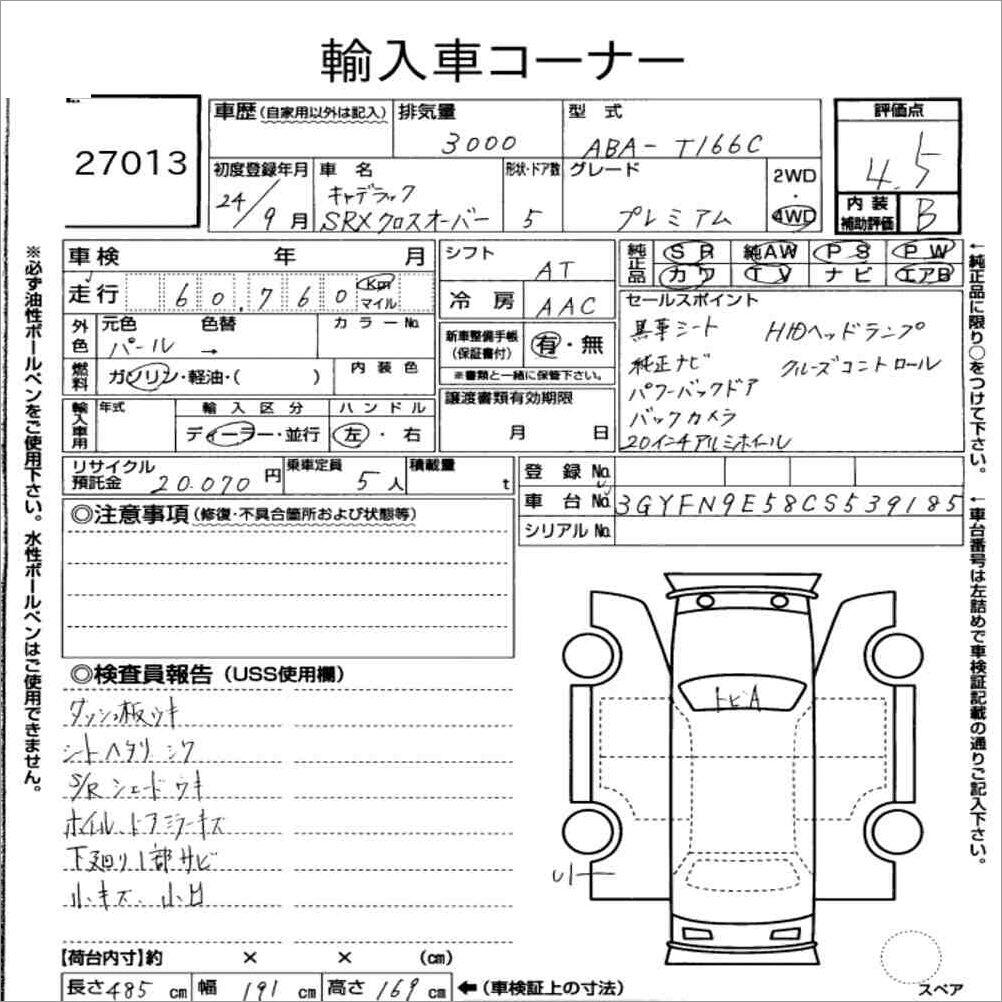 輸入車コーナー
27013
車歴(自家用以外は記入) 排気量 3000 型式 ABA-T166C
評価点 4.5
初度登録年月 24/9月 車名 キャデラック SRXクロスオーバー 形状・ドア数 5 グレード プレミアム 2WD・4WD
内装補助評価 B
車検 年 月
走行 60,760 Km マイル
シフト AT
冷房 AAC
純正品 SR 純AW PS PW
カワ TV ナビ エアB
外色 元色 パール 色替 → カラーNo.
燃料 ガソリン・軽油・( ) 内装色
新車整備手帳(保証書付) 有・無
※書類と一緒に保管下さい。
セールスポイント
黒革シート HIDヘッドランプ
純正ナビ クルーズコントロール
パワーバックドア
バックカメラ
20インチアルミホイール
輸入車用 年式 輸入区分 ディーラー・並行 ハンドル 左・右
譲渡書類有効期限 月 日
リサイクル預託金 20.070円 乗車定員 5人 積載量 t
登録No.
車台No. 3GYFN9E58CS539185
シリアルNo.
◎注意事項(修復・不具合箇所および状態等)
◎検査員報告(USS使用欄)
ダッシュ板ウキ
シートヘタリ シワ
S/Rシェードウキ
ホイル、ドアミラーキズ
下廻り1部サビ
小キズ、小凹
トビA
【荷台内寸】約 × × (cm)
長さ485cm 幅191cm 高さ169cm ←(車検証上の寸法)
スペア
※必ず油性ボールペンをご使用下さい。水性ボールペンはご使用できません。
←純正品に限り○をつけて下さい。
←車台番号は左詰めで車検証記載の通りご記入下さい。